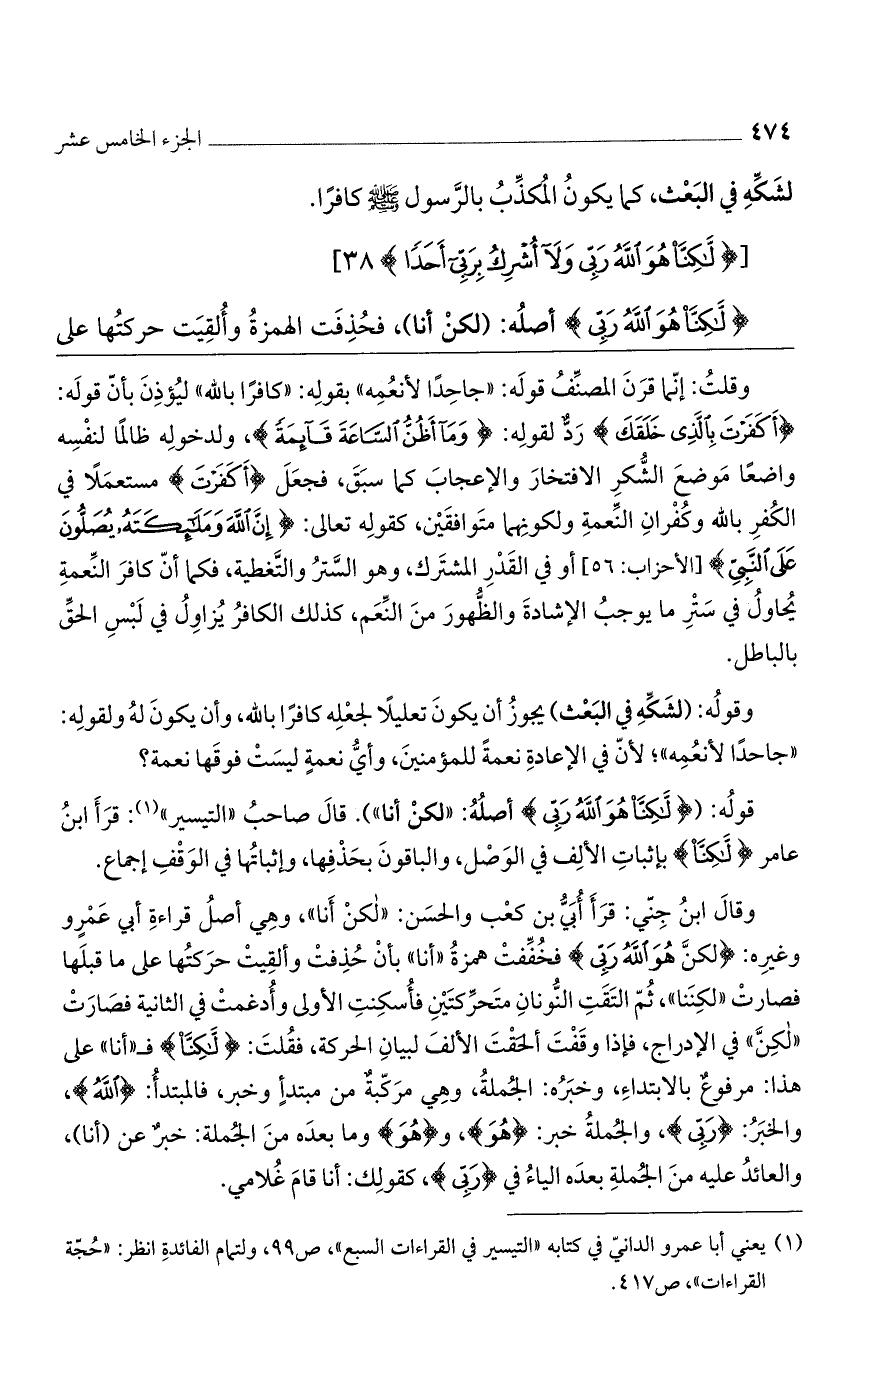 ٤٧٤ الجزء الخامس عشر
لشَكِّهِ في البَعْث، كما يكونُ المُكذِّبُ بالرَّسول ﷺ كافرًا.
[﴿ لَّٰكِنَّا۠ هُوَ ٱللَّهُ رَبِّى وَلَآ أُشْرِكُ بِرَبِّىٓ أَحَدًا ﴾ ٣٨]
﴿ لَّٰكِنَّا۠ هُوَ ٱللَّهُ رَبِّى ﴾ أصلُه: (لكنْ أنا)، فحُذِفَت الهمزةُ وأُلقِيَت حركتُها على
وقلتُ: إنّما قرَنَ المصنِّفُ قولَه: «جاحِدًا لأنعُمِه» بقولِه: «كافرًا بالله» ليُؤذِنَ بأنّ قولَه:
﴿أَكَفَرْتَ بِٱلَّذِى خَلَقَكَ ﴾ رَدٌّ لقولِه: ﴿ وَمَآ أَظُنُّ ٱلسَّاعَةَ قَآئِمَةً ﴾، ولدخولِه ظالمًا لنفْسِه
واضعًا مَوضعَ الشُّكرِ الافتخارَ والإعجابَ كما سبَقَ، فجعَلَ ﴿أَكَفَرْتَ ﴾ مستعمَلًا في
الكُفرِ بالله وكُفْرانِ النِّعمةِ ولكونِهما متوافقَيْن، كقولِه تعالى: ﴿ إِنَّ ٱللَّهَ وَمَلَٰٓئِكَتَهُۥ يُصَلُّونَ
عَلَى ٱلنَّبِىِّ ﴾ [الأحزاب: ٥٦] أو في القَدْرِ المشترَك، وهو السَّترُ والتَّغطية، فكما أنّ كافرَ النِّعمةِ
يُحاولُ في سَتْرِ ما يوجبُ الإشادةَ والظُّهورَ منَ النِّعَم، كذلك الكافرُ يُزاوِلُ في لَبْسِ الحقِّ
بالباطل.
وقولُه: (لشَكِّهِ في البَعْث) يجوزُ أن يكونَ تعليلًا لجعْلِه كافرًا بالله، وأن يكونَ لهُ ولقولِه:
«جاحدًا لأنعُمِه»؛ لأنّ في الإعادةِ نعمةً للمؤمنينَ، وأيُّ نعمةٍ ليسَتْ فوقَها نعمة؟
قولُه: (﴿ لَّٰكِنَّا۠ هُوَ ٱللَّهُ رَبِّى ﴾ أصلُهُ: «لكنْ أنا»). قالَ صاحبُ «التيسير»(١): قرَأَ ابنُ
عامر ﴿ لَّٰكِنَّا۠ ﴾ بإثباتِ الألِف في الوَصْل، والباقونَ بحَذْفِها، وإثباتُها في الوَقْفِ إجماع.
وقالَ ابنُ جِنّي: قرَأَ أُبَيُّ بن كعْب والحسَن: «لٰكنْ أنا»، وهِي أصلُ قراءةِ أبي عَمْرٍو
وغيرِه: ﴿لكنَّ هُوَ ٱللَّهُ رَبِّى ﴾ فخُفِّفتْ همزةُ «أنا» بأنْ حُذِفتْ وألقِيتْ حرَكتُها على ما قبلَها
فصارتْ «لكِنَنا»، ثُمّ التقَتِ النُّونانِ متَحرِّكتَيْنِ فأُسكِنتِ الأولى وأُدغمتْ في الثانية فصَارَتْ
«لٰكِنَّ» في الإدراج، فإذا وقَفْتَ ألحَقْتَ الألفَ لبيانِ الحركة، فقُلتَ: ﴿ لَّٰكِنَّا۠ ﴾ فـ«أنا» على
هذا: مرفوعٌ بالابتداءِ، وخبَرُه: الجُملةُ، وهِي مرَكّبةٌ من مبتدأٍ وخبر، فالمبتدأُ: ﴿ٱللَّهُ ﴾،
والخبَرُ: ﴿رَبِّى ﴾، والجُملةُ خبر: ﴿هُوَ﴾، و﴿هُوَ﴾ وما بعدَه منَ الجُملة: خبرٌ عن (أنا)،
والعائدُ عليه منَ الجُملةِ بعدَه الياءُ في ﴿رَبِّى ﴾، كقولِك: أنا قامَ غُلامي.
(١) يعني أبا عمرو الدانيّ في كتابه «التيسير في القراءات السبع»، ص٩٩، ولتمام الفائدةِ انظر: «حُجّة
القراءات»، ص٤١٧.